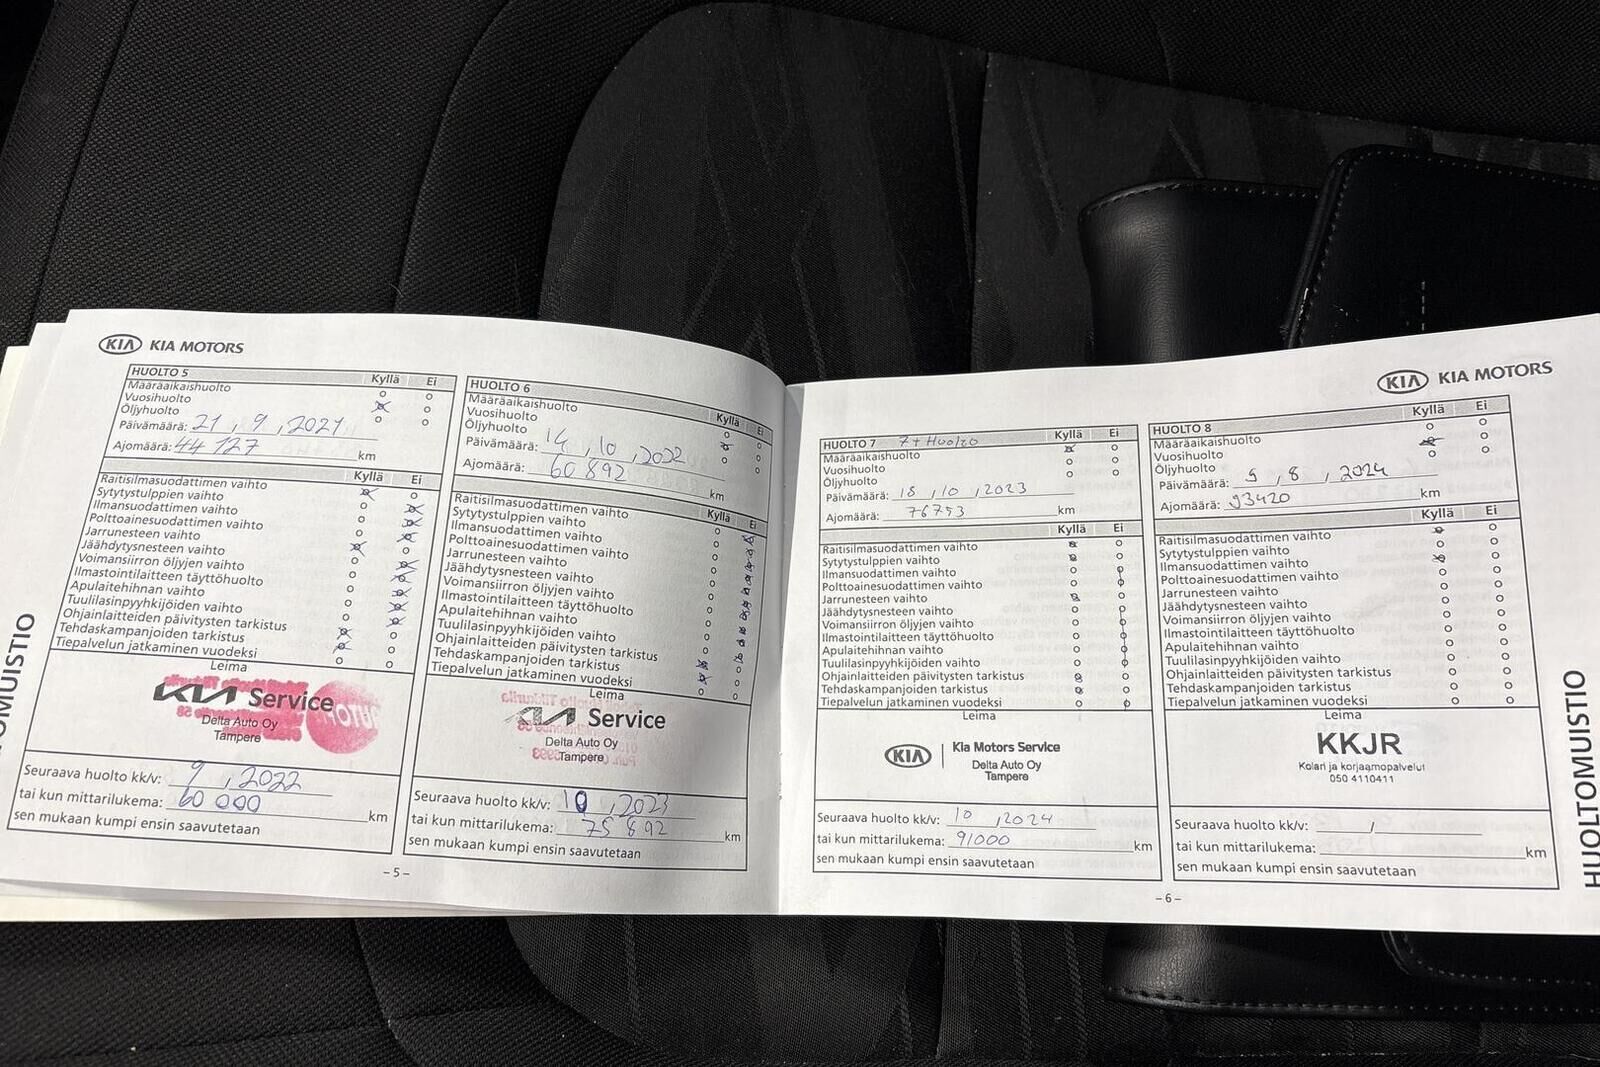 KIA KIA MOTORS
HUOLTO 5 Kyllä Ei
Määräaikaishuolto
Vuosihuolto
Öljyhuolto
Päivämäärä: 21 , 9 , 2021
Ajomäärä: 44 127 km
Kyllä Ei
Raitisilmasuodattimen vaihto
Sytytystulppien vaihto
Ilmansuodattimen vaihto
Polttoainesuodattimen vaihto
Jarrunesteen vaihto
Jäähdytysnesteen vaihto
Voimansiirron öljyjen vaihto
Ilmastointilaitteen täyttöhuolto
Apulaitehihnan vaihto
Tuulilasinpyyhkijöiden vaihto
Ohjainlaitteiden päivitysten tarkistus
Tehdaskampanjoiden tarkistus
Tiepalvelun jatkaminen vuodeksi
Leima
KIA Service
Delta Auto Oy
Tampere
Seuraava huolto kk/v: 9 , 2022
tai kun mittarilukema: 60 000 km
sen mukaan kumpi ensin saavutetaan
HUOLTO 6
Kyllä Ei
Määräaikaishuolto
Vuosihuolto
Öljyhuolto
Päivämäärä: 14 , 10 , 2022
Ajomäärä: 60 892 km
Kyllä Ei
Raitisilmasuodattimen vaihto
Sytytystulppien vaihto
Ilmansuodattimen vaihto
Polttoainesuodattimen vaihto
Jarrunesteen vaihto
Jäähdytysnesteen vaihto
Voimansiirron öljyjen vaihto
Ilmastointilaitteen täyttöhuolto
Apulaitehihnan vaihto
Tuulilasinpyyhkijöiden vaihto
Ohjainlaitteiden päivitysten tarkistus
Tehdaskampanjoiden tarkistus
Tiepalvelun jatkaminen vuodeksi
Leima
KIA Service
Delta Auto Oy
Tampere
Seuraava huolto kk/v: 10 , 2023
tai kun mittarilukema: 75 892 km
sen mukaan kumpi ensin saavutetaan
– 5 –
KIA KIA MOTORS
HUOLTO 7 7+ Huolto Kyllä Ei
Määräaikaishuolto
Vuosihuolto
Öljyhuolto
Päivämäärä: 18 , 10 , 2023
Ajomäärä: 76753 km
Kyllä Ei
Raitisilmasuodattimen vaihto
Sytytystulppien vaihto
Ilmansuodattimen vaihto
Polttoainesuodattimen vaihto
Jarrunesteen vaihto
Jäähdytysnesteen vaihto
Voimansiirron öljyjen vaihto
Ilmastointilaitteen täyttöhuolto
Apulaitehihnan vaihto
Tuulilasinpyyhkijöiden vaihto
Ohjainlaitteiden päivitysten tarkistus
Tehdaskampanjoiden tarkistus
Tiepalvelun jatkaminen vuodeksi
Leima
KIA Kia Motors Service
Delta Auto Oy
Tampere
Seuraava huolto kk/v: 10 , 2024
tai kun mittarilukema: 91000 km
sen mukaan kumpi ensin saavutetaan
HUOLTO 8 Kyllä Ei
Määräaikaishuolto
Vuosihuolto
Öljyhuolto
Päivämäärä: 9 , 8 , 2024
Ajomäärä: 93420 km
Kyllä Ei
Raitisilmasuodattimen vaihto
Sytytystulppien vaihto
Ilmansuodattimen vaihto
Polttoainesuodattimen vaihto
Jarrunesteen vaihto
Jäähdytysnesteen vaihto
Voimansiirron öljyjen vaihto
Ilmastointilaitteen täyttöhuolto
Apulaitehihnan vaihto
Tuulilasinpyyhkijöiden vaihto
Ohjainlaitteiden päivitysten tarkistus
Tehdaskampanjoiden tarkistus
Tiepalvelun jatkaminen vuodeksi
Leima
KKJR
Kolari ja korjaamopalvelut
050 4110411
Seuraava huolto kk/v: /
tai kun mittarilukema: km
sen mukaan kumpi ensin saavutetaan
– 6 –
HUOLTOMUISTIO